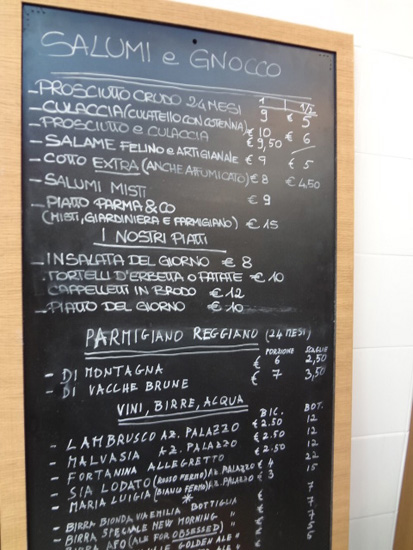 SALUMI e GNOCCO
1 1/2
- PROSCIUTTO CRUDO 24 MESI 9 € 5
- CULACCIA (CULATELLO CON COTENNA) € 10 € 6
- PROSCIUTTO e CULACCIA € 9,50
- SALAME FELINO e ARTIGIANALE € 9 € 5
- COTTO EXTRA (ANCHE AFFUMICATO) € 8 € 4,50
- SALUMI MISTI € 9
- PIATTO PARMA & CO
(MISTI, GIARDINIERA E PARMIGIANO) € 15
I NOSTRI PIATTI
- INSALATA DEL GIORNO € 8
- TORTELLI D'ERBETTA o PATATE € 10
- CAPPELLETTI IN BRODO € 12
- PIATTO DEL GIORNO € 10
PARMIGIANO REGGIANO (24 MESI)
PORZIONE SCAGLIE
- DI MONTAGNA € 6 2,50
- DI VACCHE BRUNE € 7 3,50
VINI, BIRRE, ACQUA
BIC. BOT.
- LAMBRUSCO AZ. PALAZZO € 2.50 12
- MALVASIA AZ. PALAZZO € 2.50 12
- FORTANINA ALLEGRETTO € 2.50 12
- SIA LODATO (ROSSO FERMO) AZ. PALAZZO € 4 22
- MARIA LUIGIA (BIANCO FERMO) AZ. PALAZZO € 3 15
*
- BIRRA BIONDA VIA EMILIA BOTTIGLIA " 7
- BIRRA SPECIALE NEW MORNING " 7
- BIRRA AFO (ALE FOR OBSESSED) " 5
GOLDEN ALE " 5